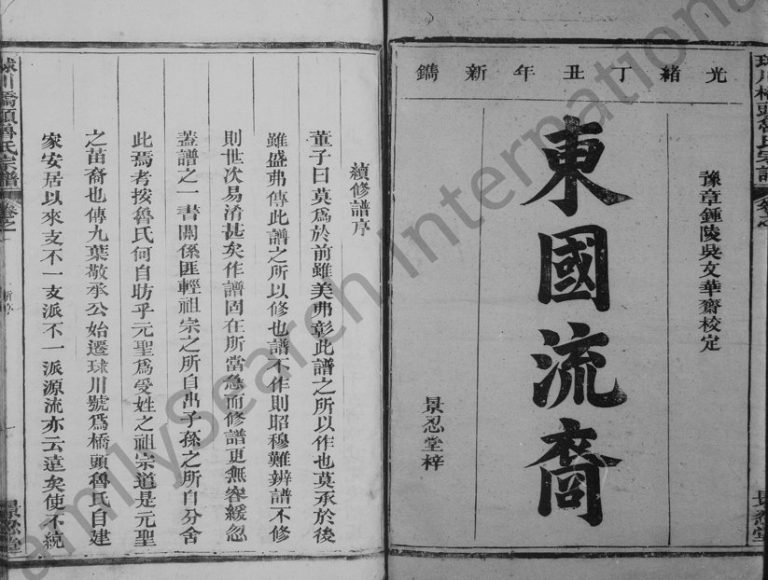 光緒丁丑年新鐫
豫章鍾陵吳文華齋校定
東國流裔
景忍堂梓
球川橋頭魯氏宗譜
卷之
景忍堂
續修譜序
董子曰莫爲於前雖美弗彰此譜之所以作也莫承於後
雖盛弗傳此譜之所以修也譜不作則昭穆難辨譜不修
則世次易淆甚矣作譜固在所當急而修譜更無容緩忽
蓋譜之一書關係匪輕祖宗之所自出子孫之所自分舍
此焉考按魯氏何自昉乎元聖爲受姓之祖宗道是元聖
之苗裔也傳九葉敬承公始遷球川號爲橋頭魯氏自建
家安居以來支不一支派不一派源流亦云遠矣使不統
球川橋頭魯氏宗譜
卷之一
新序
一
景忍堂
FamilySearch International